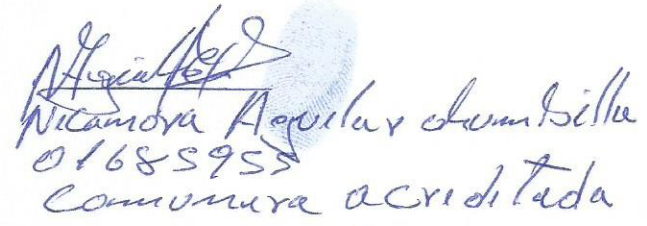 Nicamora Aguilar chumbilla
01685955
Comunera acreditada